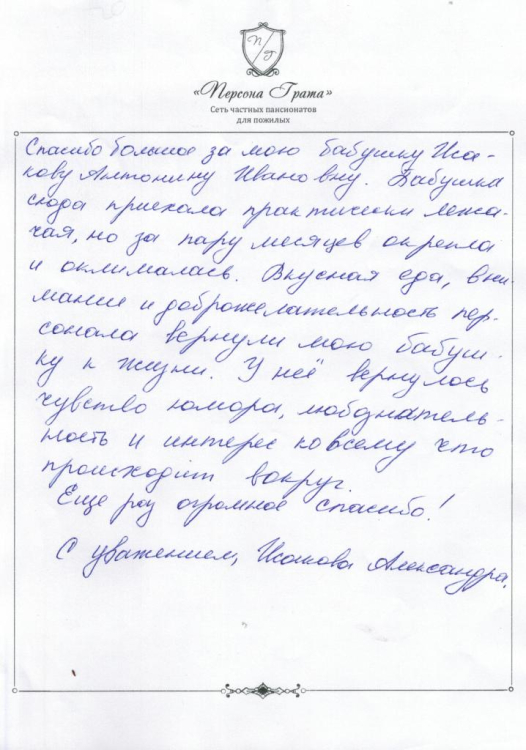 П Г
«Персона Грата»
Сеть частных пансионатов
для пожилых
Спасибо большое за мою бабушку Иса-
кову Антонину Ивановну. Бабушка
сюда приехала практически лежа-
чая, но за пару месяцев окрепла
и оклималась. Вкусная еда, вни-
мание и доброжелательность пер-
сонала вернули мою бабуш-
ку к жизни. У неё вернулось
чувство юмора, любознатель-
ность и интерес ко всему что
происходит вокруг.
Еще раз огромное спасибо!
С уважением, Исакова Александра.